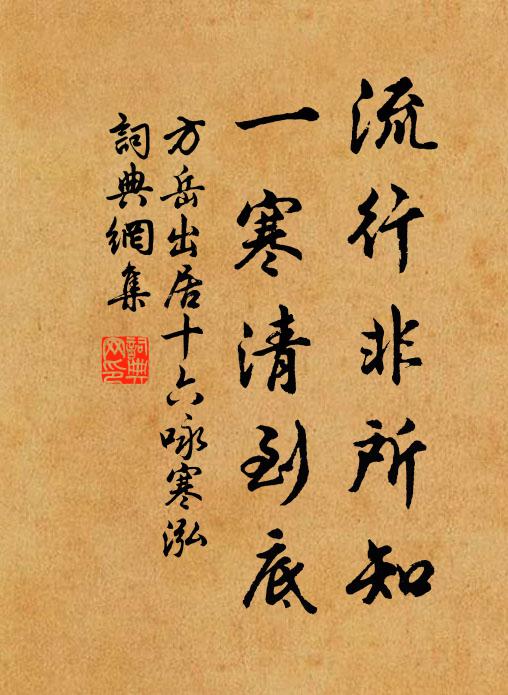 流行非所知
一寒清到底
方岳出居十六咏寒泓
詞典網集
詞典網印